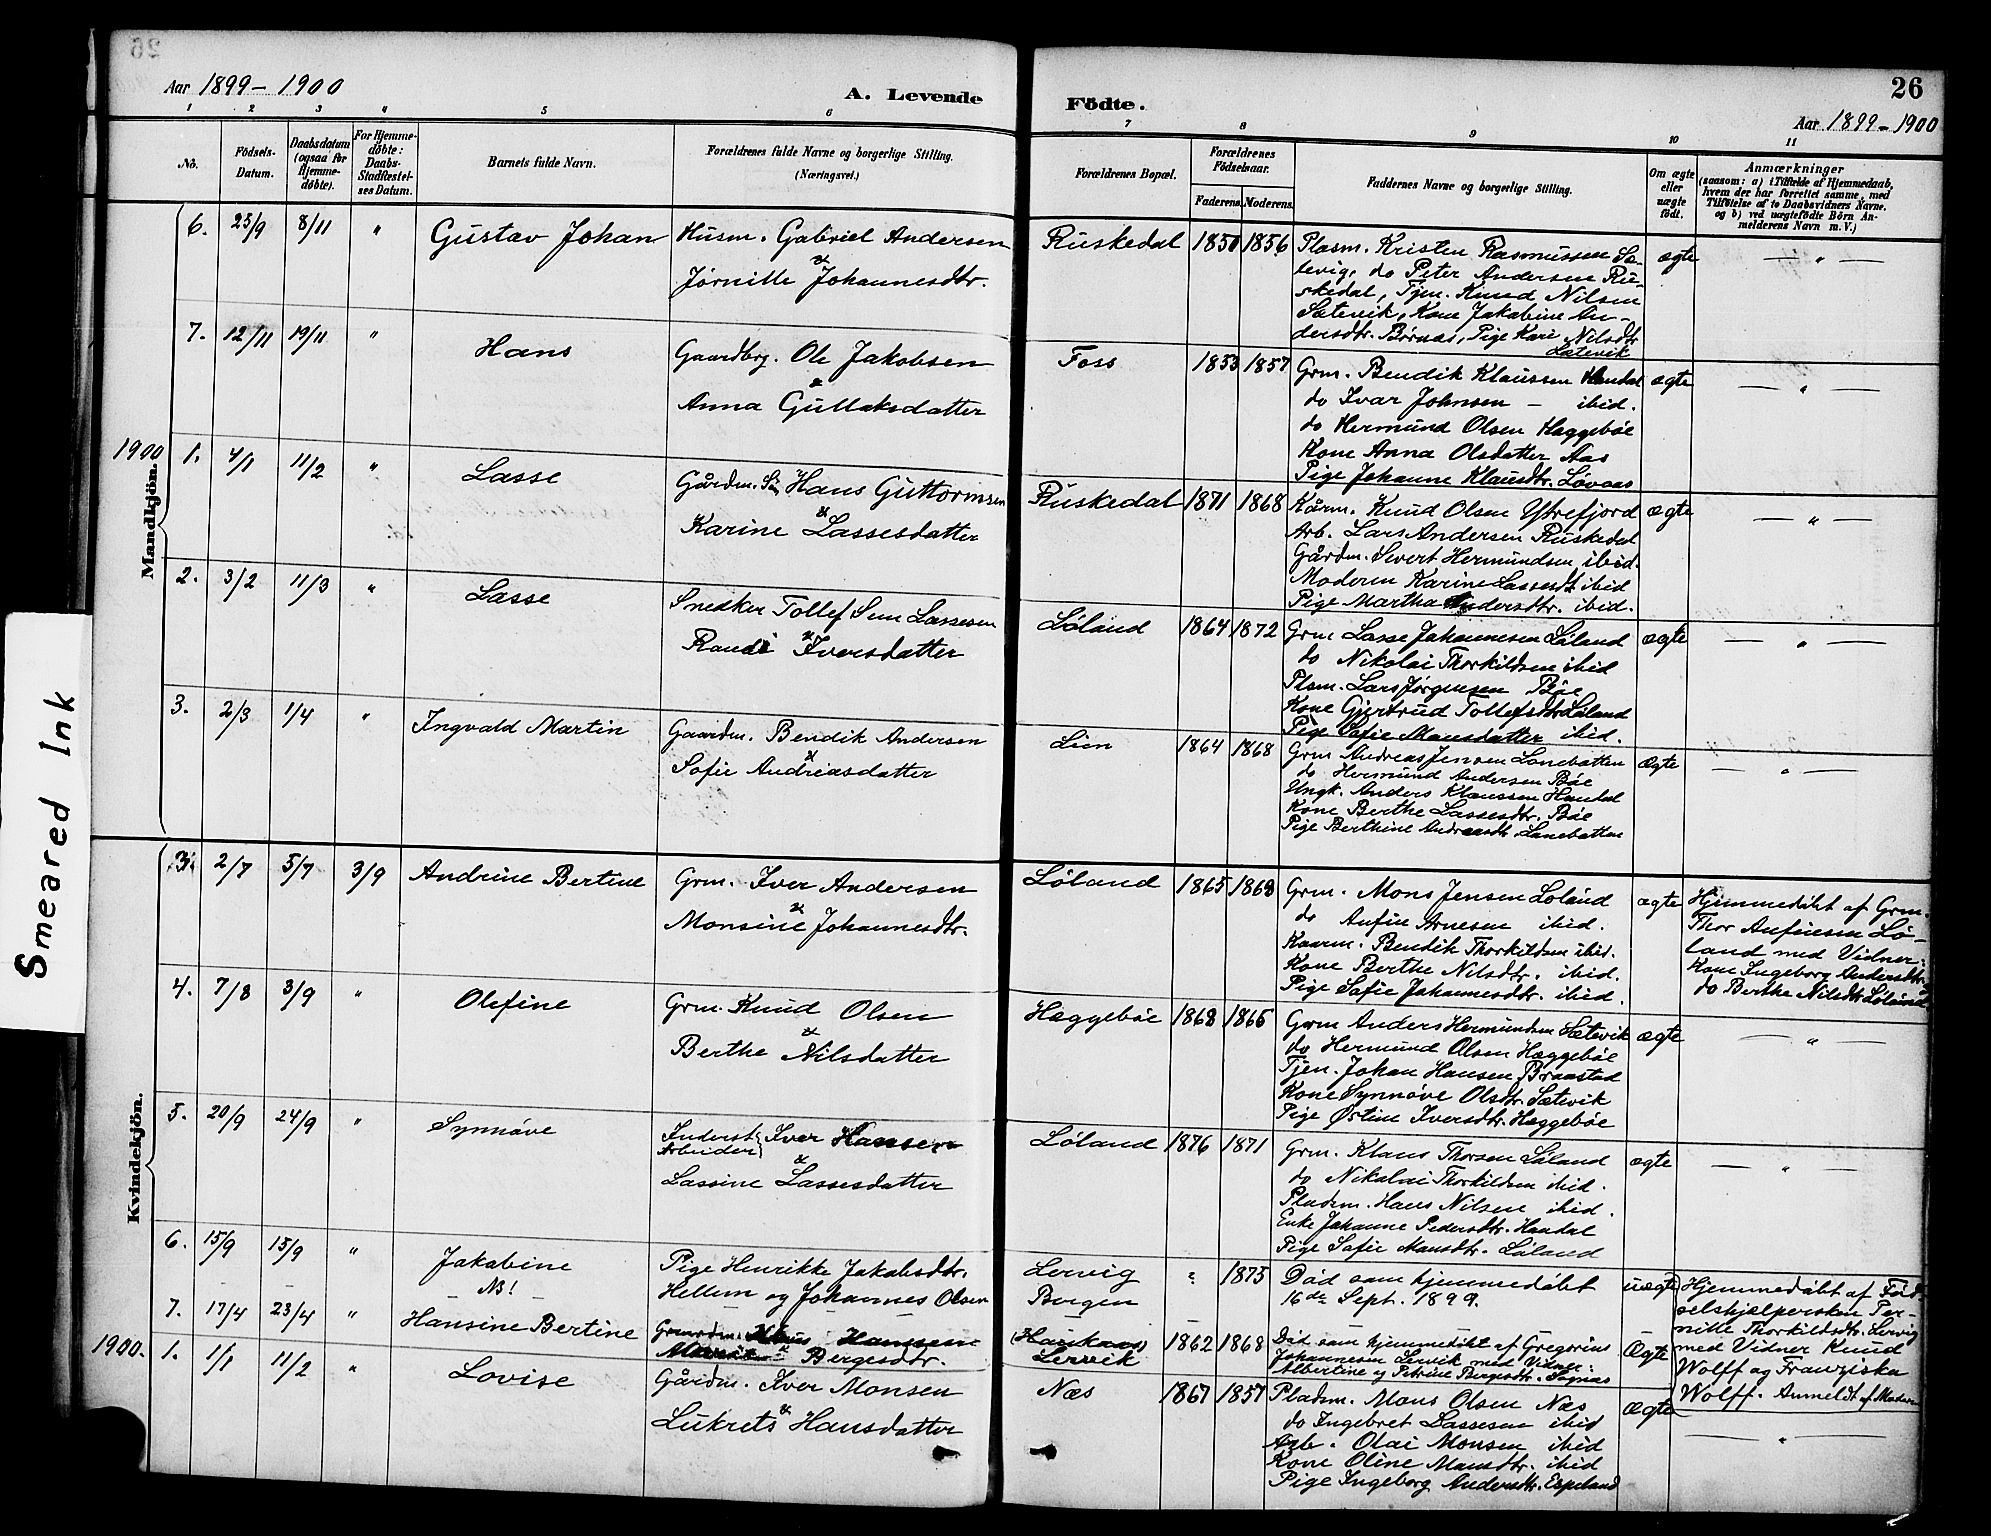 26
Aar 1899 - 1900
A. Levende
Födte.
26
Aar 1899 - 1900
1 2 3 4 5 6 7 8 9 10 11
No.
Födsels-Datum.
Daabsdatum (ogsaa for Hjemme-döbte).
For Hjemme-döbte: Daabs-Stadfæstel-ses Datum.
Barnets fulde Navn.
Forældrenes fulde Navne og borgerlige Stilling.
(Næringsvei.)
Forældrenes Bopæl.
Forældrenes Födselsaar.
Faderens. Moderens.
Faddernes Navne og borgerlige Stilling.
Om ægte eller uægte födt.
Anmærkninger
(saasom: a) i Tilfælde af Hjemmedaab,
hvem der har forrettet samme, med
Tilföielse af to Daabsvidners Navne,
og b) ved uægtefödte Börn An-
melderens Navn m. V.)
Smeared Ink
Mandkjön.
6. 25/9 8/11 " Gustav Johan
Husm. Gabriel Andersen
&
Jørnille Johannesdtr.
Ruskedal 1850 1856
Plasm. Kristen Rasmussen Sæ-
tevig, do Peter Andersen Ru-
skedal, Tjen. Knud Nilsen
Sætevik, Kone Jakobine An-
dersdtr. Børnæs, Pige Kari Nilsdtr
Sætevik
ægte — " —
7. 12/11 19/11 " Hans
Gaardbrg. Ole Jakobsen
&
Anna Gullaksdatter
Foss 1853 1857
Grm. Bendik Klaussen Handal
do Ivar Johnsen — ibid.
do Hermund Olsen Hæggebøe
Kone Anna Olsdatter Aas
Pige Johanne Klausdtr. Løvaas
ægte — " —
1900
1. 4/1 11/2 " Lasse
Gårdm. Søn Hans Guttormsen
&
Karine Lassesdatter
Ruskedal 1871 1868
Kårm. Knud Olsen Ytrefjord
Arb. Lars Andersen Ruskedal
Gårdm. Sivert Hermundsen, ibid.
Moderen Karine Lassesdt. ibid
Pige Martha Andersdtr. ibid.
ægte — " —
2. 3/2 11/3 " Lasse
Snedker Tollef Lassesen
&
Randi Iversdatter
Løland 1864 1872
Grm Lasse Johannesen Løland
do Nikolai Thorkildsen ibid
Plsm. Lars Jørgensen Bøe
Kone Gjertrud Tollefsdtr Løland
Pige Sofie Mansdatter ibid.
ægte — " —
3. 2/3 1/4 " Ingvald Martin
Gaardm. Bendik Andersen
&
Sofie Andreasdatter
Lien 1864 1868
Grm Andreas Jensen Lanebatten
do Hermund Andersen Bøe
Ungk. Anders Klaussen Handal
Kone Berthe Lassesdtr. Bøe
Pige Berthine Andreasdt. Lanebatten
Ægte — " —
Kvindekjön.
3. 2/7 5/7 3/9 Andrine Bertine
Grm. Iver Andersen
&
Monsine Johannesdtr.
Løland 1865 1869
Grm. Mons Jensen Løland
do Anfin Arnesen ibid.
Kaarm. Bendik Thorkildsen ibid.
Kone Berthe Nilsdtr. ibid.
Pige Sofie Johannesdtr. ibid.
ægte
Hjemmedøbt af Grm.
Thor Anfinsen Lø-
land med Vidner:
Kone Ingeborg Andersdtr.
do Berthe Nilsdtr Løland
4. 7/8 3/9 " Olefine
Grm. Knud Olsen
&
Berthe Nilsdatter
Hæggebøe 1868 1865
Grm Anders Hermundsen Sætevik
do Hermund Olsen Hæggebøe
Tjen. Johan Hansen Braastad
Kone Synnøve Olsdtr. Sætevik
Pige Østine Iversdtr. Hæggebøe
ægte — " —
5. 20/9 24/9 " Synnøve
Inderst Arbeider Iver Hansen
&
Lassine Lassesdatter
Løland 1876 1871
Grm. Klaus Thorsen Løland
do Nikolai Thorkildsen ibid.
Pladsm. Hans Nilsen ibid.
Enke Johanne Pedersdtr. Handal
Pige Sofie Mansdtr. Løland
ægte — " —
6. 15/9 15/9 " Jakobine
NB!
Pige Henrikke Jakobsdtr.
Hellem og Johannes Olsen
Lervig
Borgen
" 1875
Død som hjemmedøbt
16de Sept. 1899.
uægte
Hjemmedøbt af Fød-
selshjælpersken Per-
nille Thorkildsdtr. Lervig
med Vidner Knud
Wolff og Franziska
Wolff. Anmeldt af Moderen
7. 17/4 23/4 " Hansine Bertine
Hanssen
& Bergesdtr.
Lervik
1862 1868
Død som hjemmedøbt af Gregorius
Johannesen Lervik med Vidner:
Albertine og Petrine Bergesdtr. Sognnæs
Ægte
1900.
1. 1/1 11/2 " Lovise
Gårdm. Iver Monsen
&
Lukrets Hansdatter
Næs 1867 1857
Pladsm. Mons Olsen Næs
do Ingebret Lassesen ibid
Arb. Olai Monsen ibid
Kone Oline Mansdtr. ibid
Pige Ingeborg Andersdtr. Espeland
Ægte — " —